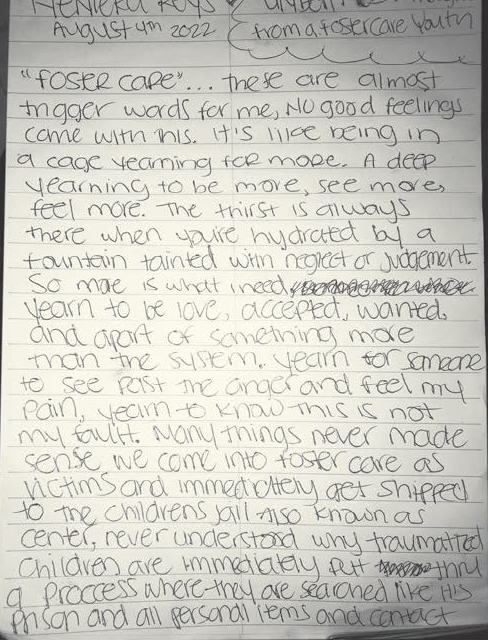 August 4th 2022
from a foster care youth
"foster care"... these are almost
trigger words for me, NO good feelings
come with this. it's like being in
a cage yearning for more. A deep
yearning to be more, see more,
feel more. The thirst is always
there when you're hydrated by a
fountain tainted with neglect or judgement.
So more is what i need,
yearn to be love, accepted, wanted,
and apart of something more
than the system. yearn for someone
to see past the anger and feel my
pain, yearn to know this is not
my fault. Many things never made
sense we come into foster care as
victims and immedictely get shipped
to the childrens jail Also known as
center, never understood why traumatized
Children are immediately put thru
a proccess where they are searched like its
prison and all personal items and contact